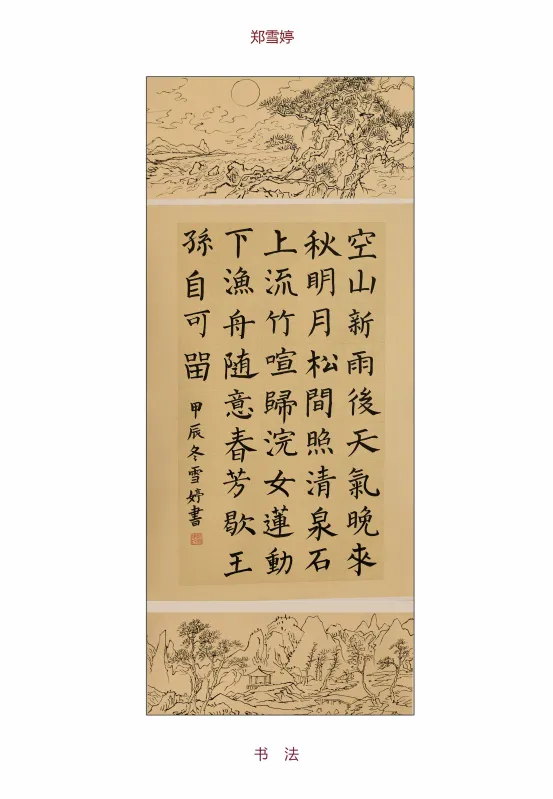 郑雪婷
空山新雨後天氣晚來
秋明月松間照清泉石
上流竹喧歸浣女蓮動
下漁舟随意春芳歇王
孫自可留
甲辰冬雪婷書
书 法